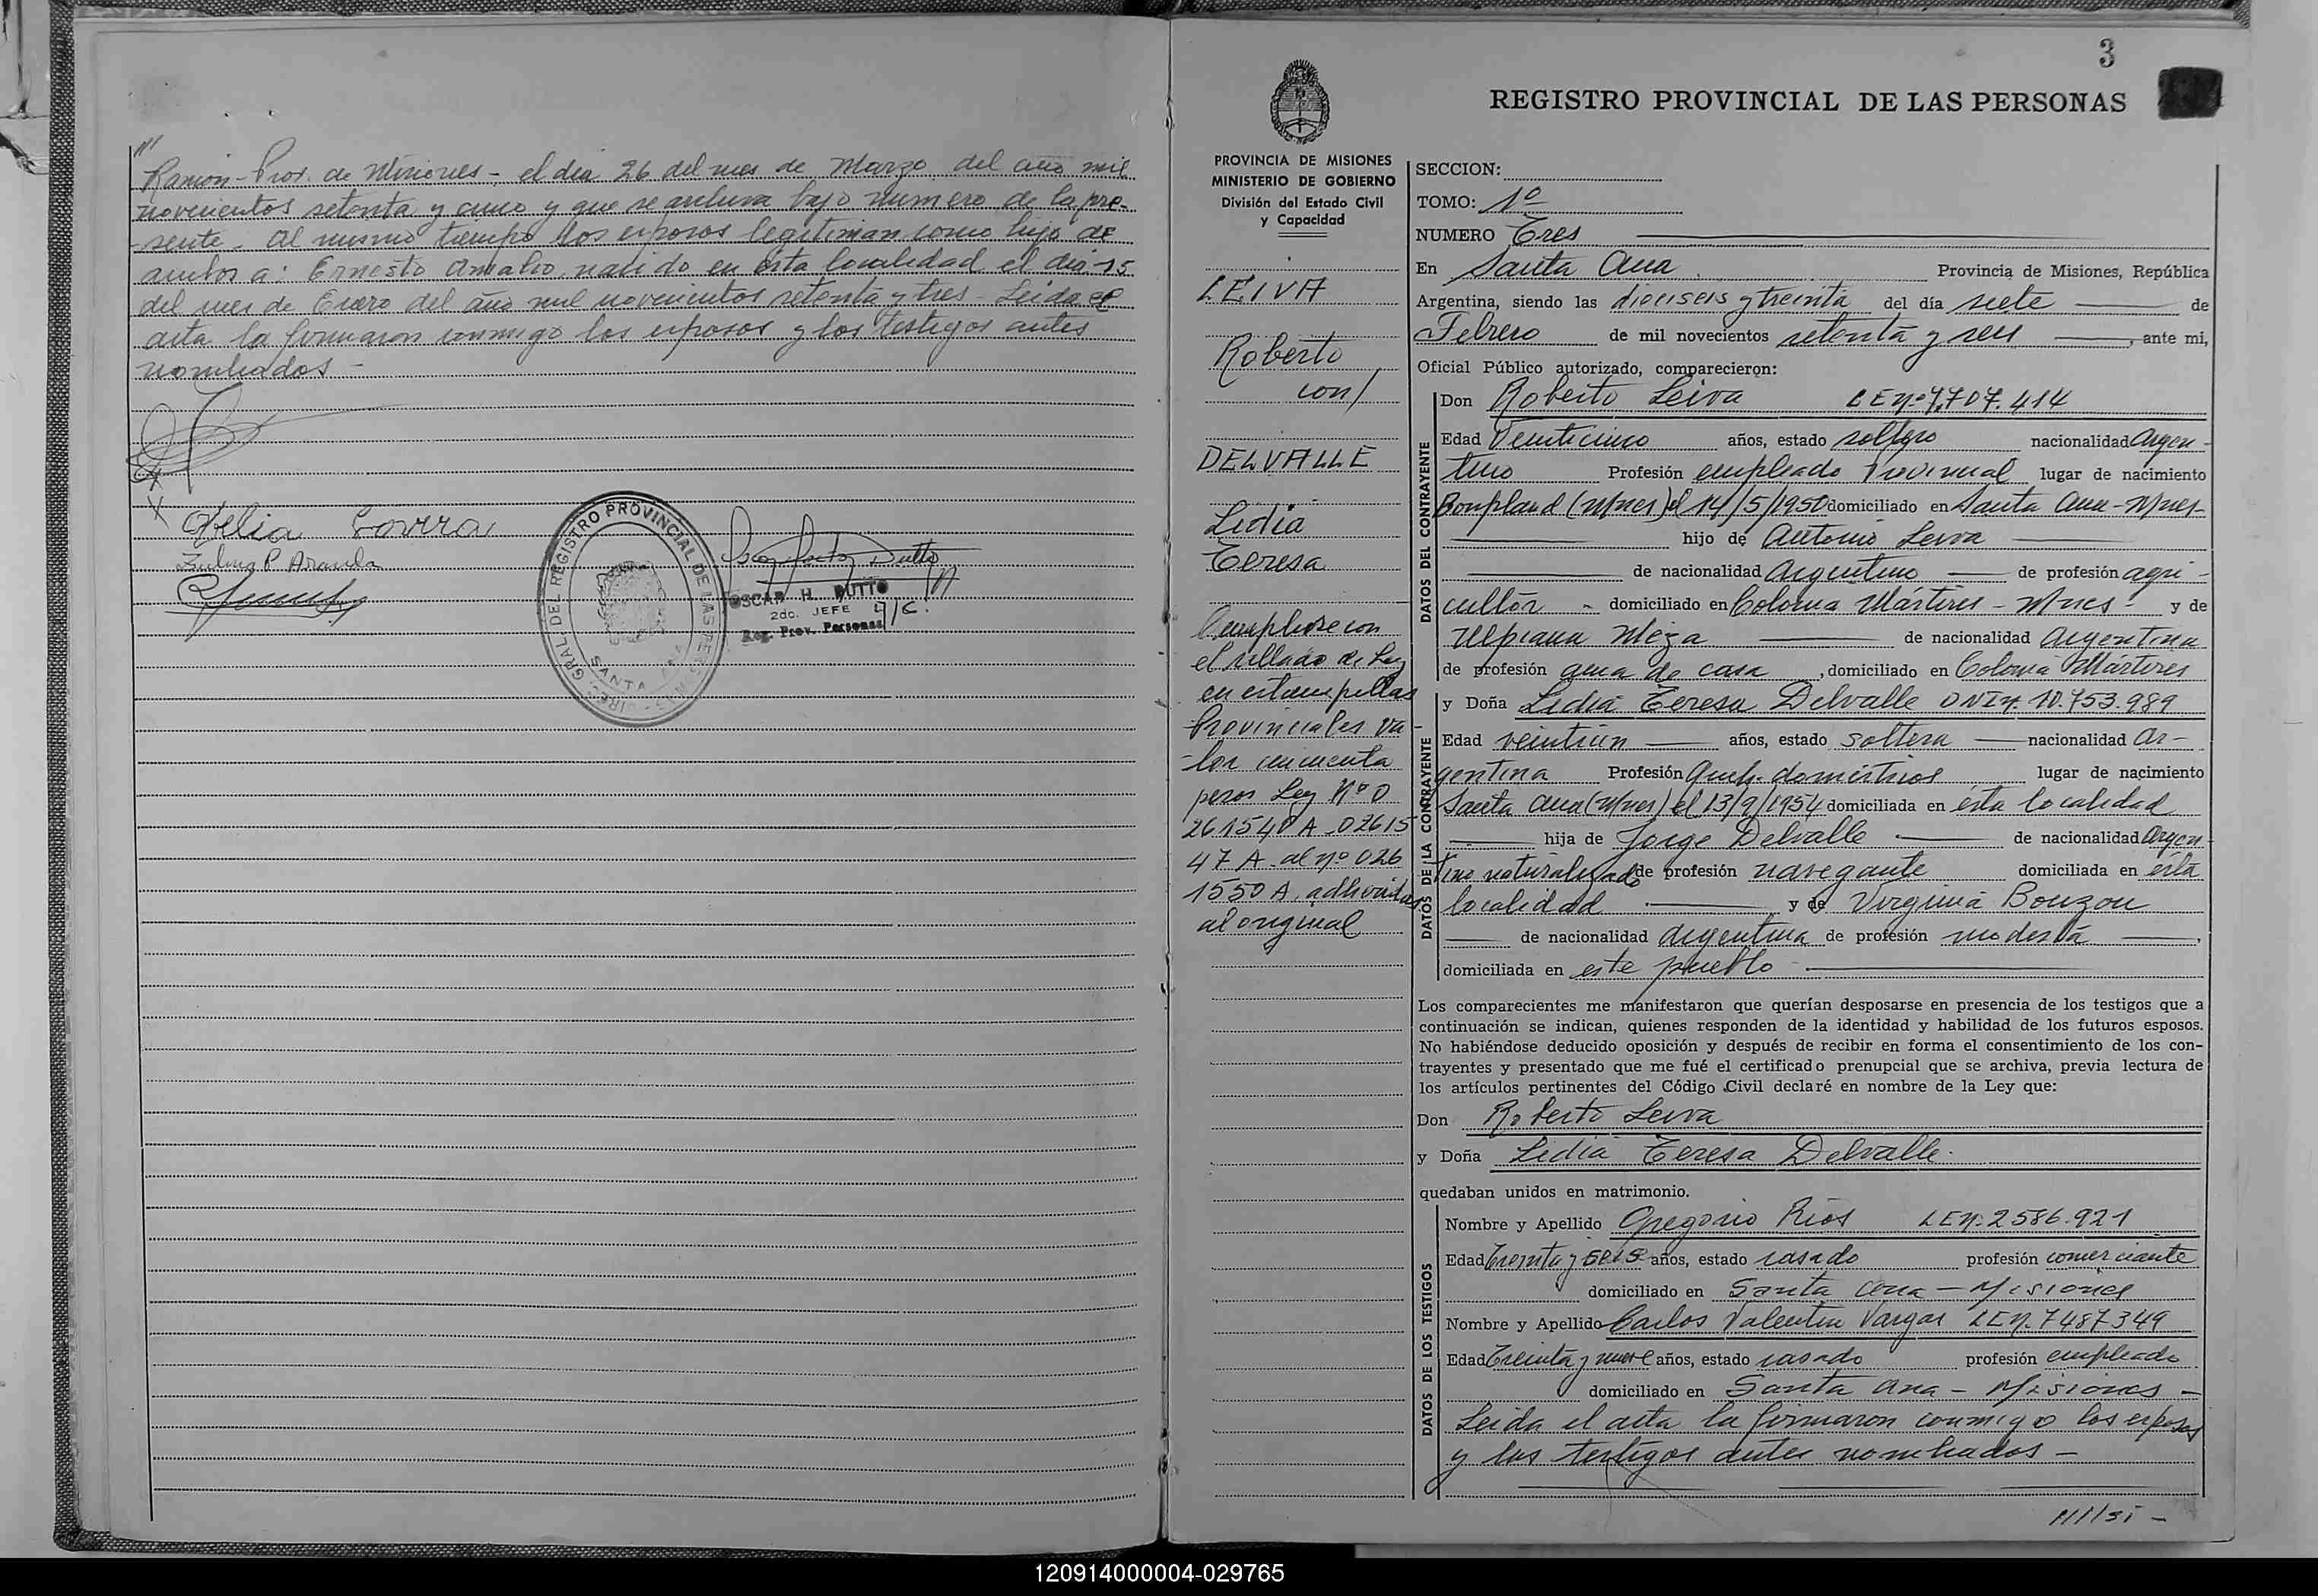 Ramón - Prov. de Misiones - el día 26 del mes de Marzo del año mil
novecientos setenta y cinco y que se archiva bajo numero de la pre-
sente - Al mismo tiempo los esposos legitiman como hijo de
ambos a: Ernesto Amalio, nacido en esta localidad el día 15
del mes de Enero del año mil novecientos setenta y tres - Leida el
acta la firmaron conmigo los esposos y los testigos antes
nombrados -
DIREC. GRAL DEL REGISTRO PROVINCIAL DE LAS PERSONAS
SANTA ANA
OSCAR H. DUTTO
2do. JEFE A/C.
Reg. Prov. Personas
3
REGISTRO PROVINCIAL DE LAS PERSONAS
PROVINCIA DE MISIONES
MINISTERIO DE GOBIERNO
División del Estado Civil
y Capacidad
LEIVA
Roberto
con/
DELVALLE
Lidia
Teresa
Cumplióse con
el sellado de Ley
en estampillas
Provinciales va-
lor cincuenta
pesos Ley Nº 0
261540 A - 02615
47 A - al nº 026
1550 A. adheridas
al original
SECCION:
TOMO: 1º
NUMERO Tres
En Santa Ana Provincia de Misiones, República
Argentina, siendo las dieciseis y treinta del día siete de
Febrero de mil novecientos setenta y seis, ante mi,
Oficial Público autorizado, comparecieron:
DATOS DEL CONTRAYENTE
Don Roberto Leiva LE nº 7.707.414
Edad Veinticinco años, estado soltero nacionalidad Argen-
tino Profesión empleado Provincial lugar de nacimiento
Bonpland (Mnes) el 14/5/1950 domiciliado en Santa Ana - Mnes-
hijo de Antonio Leiva
de nacionalidad Argentino de profesión agri-
cultor - domiciliado en Colonia Mártires - Mnes - y de
Ulpiana Meza de nacionalidad Argentina
de profesión ama de casa, domiciliado en Colonia Mártires
DATOS DE LA CONTRAYENTE
y Doña Lidia Teresa Delvalle DNI nº 10.753.989
Edad veintiun años, estado soltera nacionalidad Ar-
gentina Profesión Queh. domésticos lugar de nacimiento
Santa Ana (Mnes) el 13/9/1954 domiciliada en ésta localidad
hija de Jorge Delvalle de nacionalidad Argen-
tino naturalizado de profesión navegante domiciliada en ésta
localidad y de Virginia Bouzon
de nacionalidad Argentina de profesión modista,
domiciliada en este pueblo
Los comparecientes me manifestaron que querían desposarse en presencia de los testigos que a
continuación se indican, quienes responden de la identidad y habilidad de los futuros esposos.
No habiéndose deducido oposición y después de recibir en forma el consentimiento de los con-
trayentes y presentado que me fué el certificado prenupcial que se archiva, previa lectura de
los artículos pertinentes del Código Civil declaré en nombre de la Ley que:
Don Roberto Leiva
y Doña Lidia Teresa Delvalle.
quedaban unidos en matrimonio.
DATOS DE LOS TESTIGOS
Nombre y Apellido Gregorio Rios LE nº 2586.921
Edad Treinta y seis años, estado casado profesión comerciante
domiciliado en Santa Ana - Misiones
Nombre y Apellido Carlos Valentin Vargas LE nº 7487349
Edad Treinta y nueve años, estado casado profesión empleado
domiciliado en Santa Ana - Misiones -
Leida el acta la firmaron conmigo los esposos
y los testigos antes nombrados -
120914000004-029765